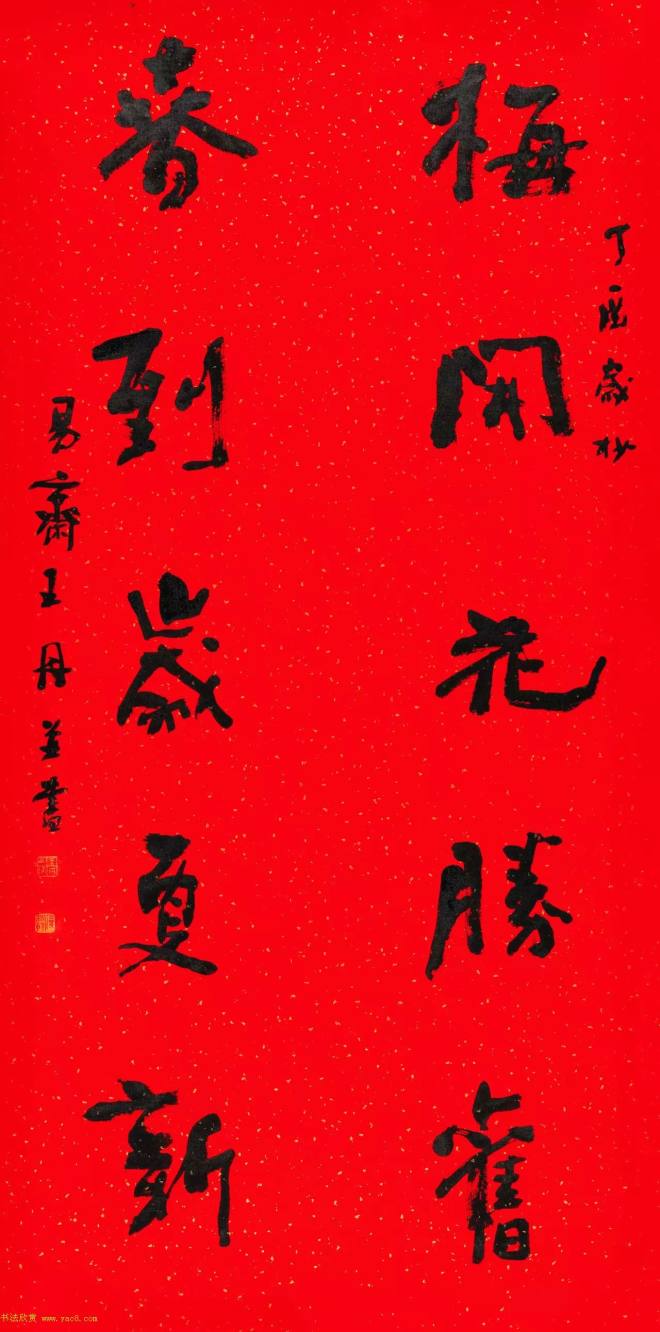 丁酉歲杪
梅開花勝舊
春到歲更新
易齋王丹並書
书法欣赏 www.yac8.com